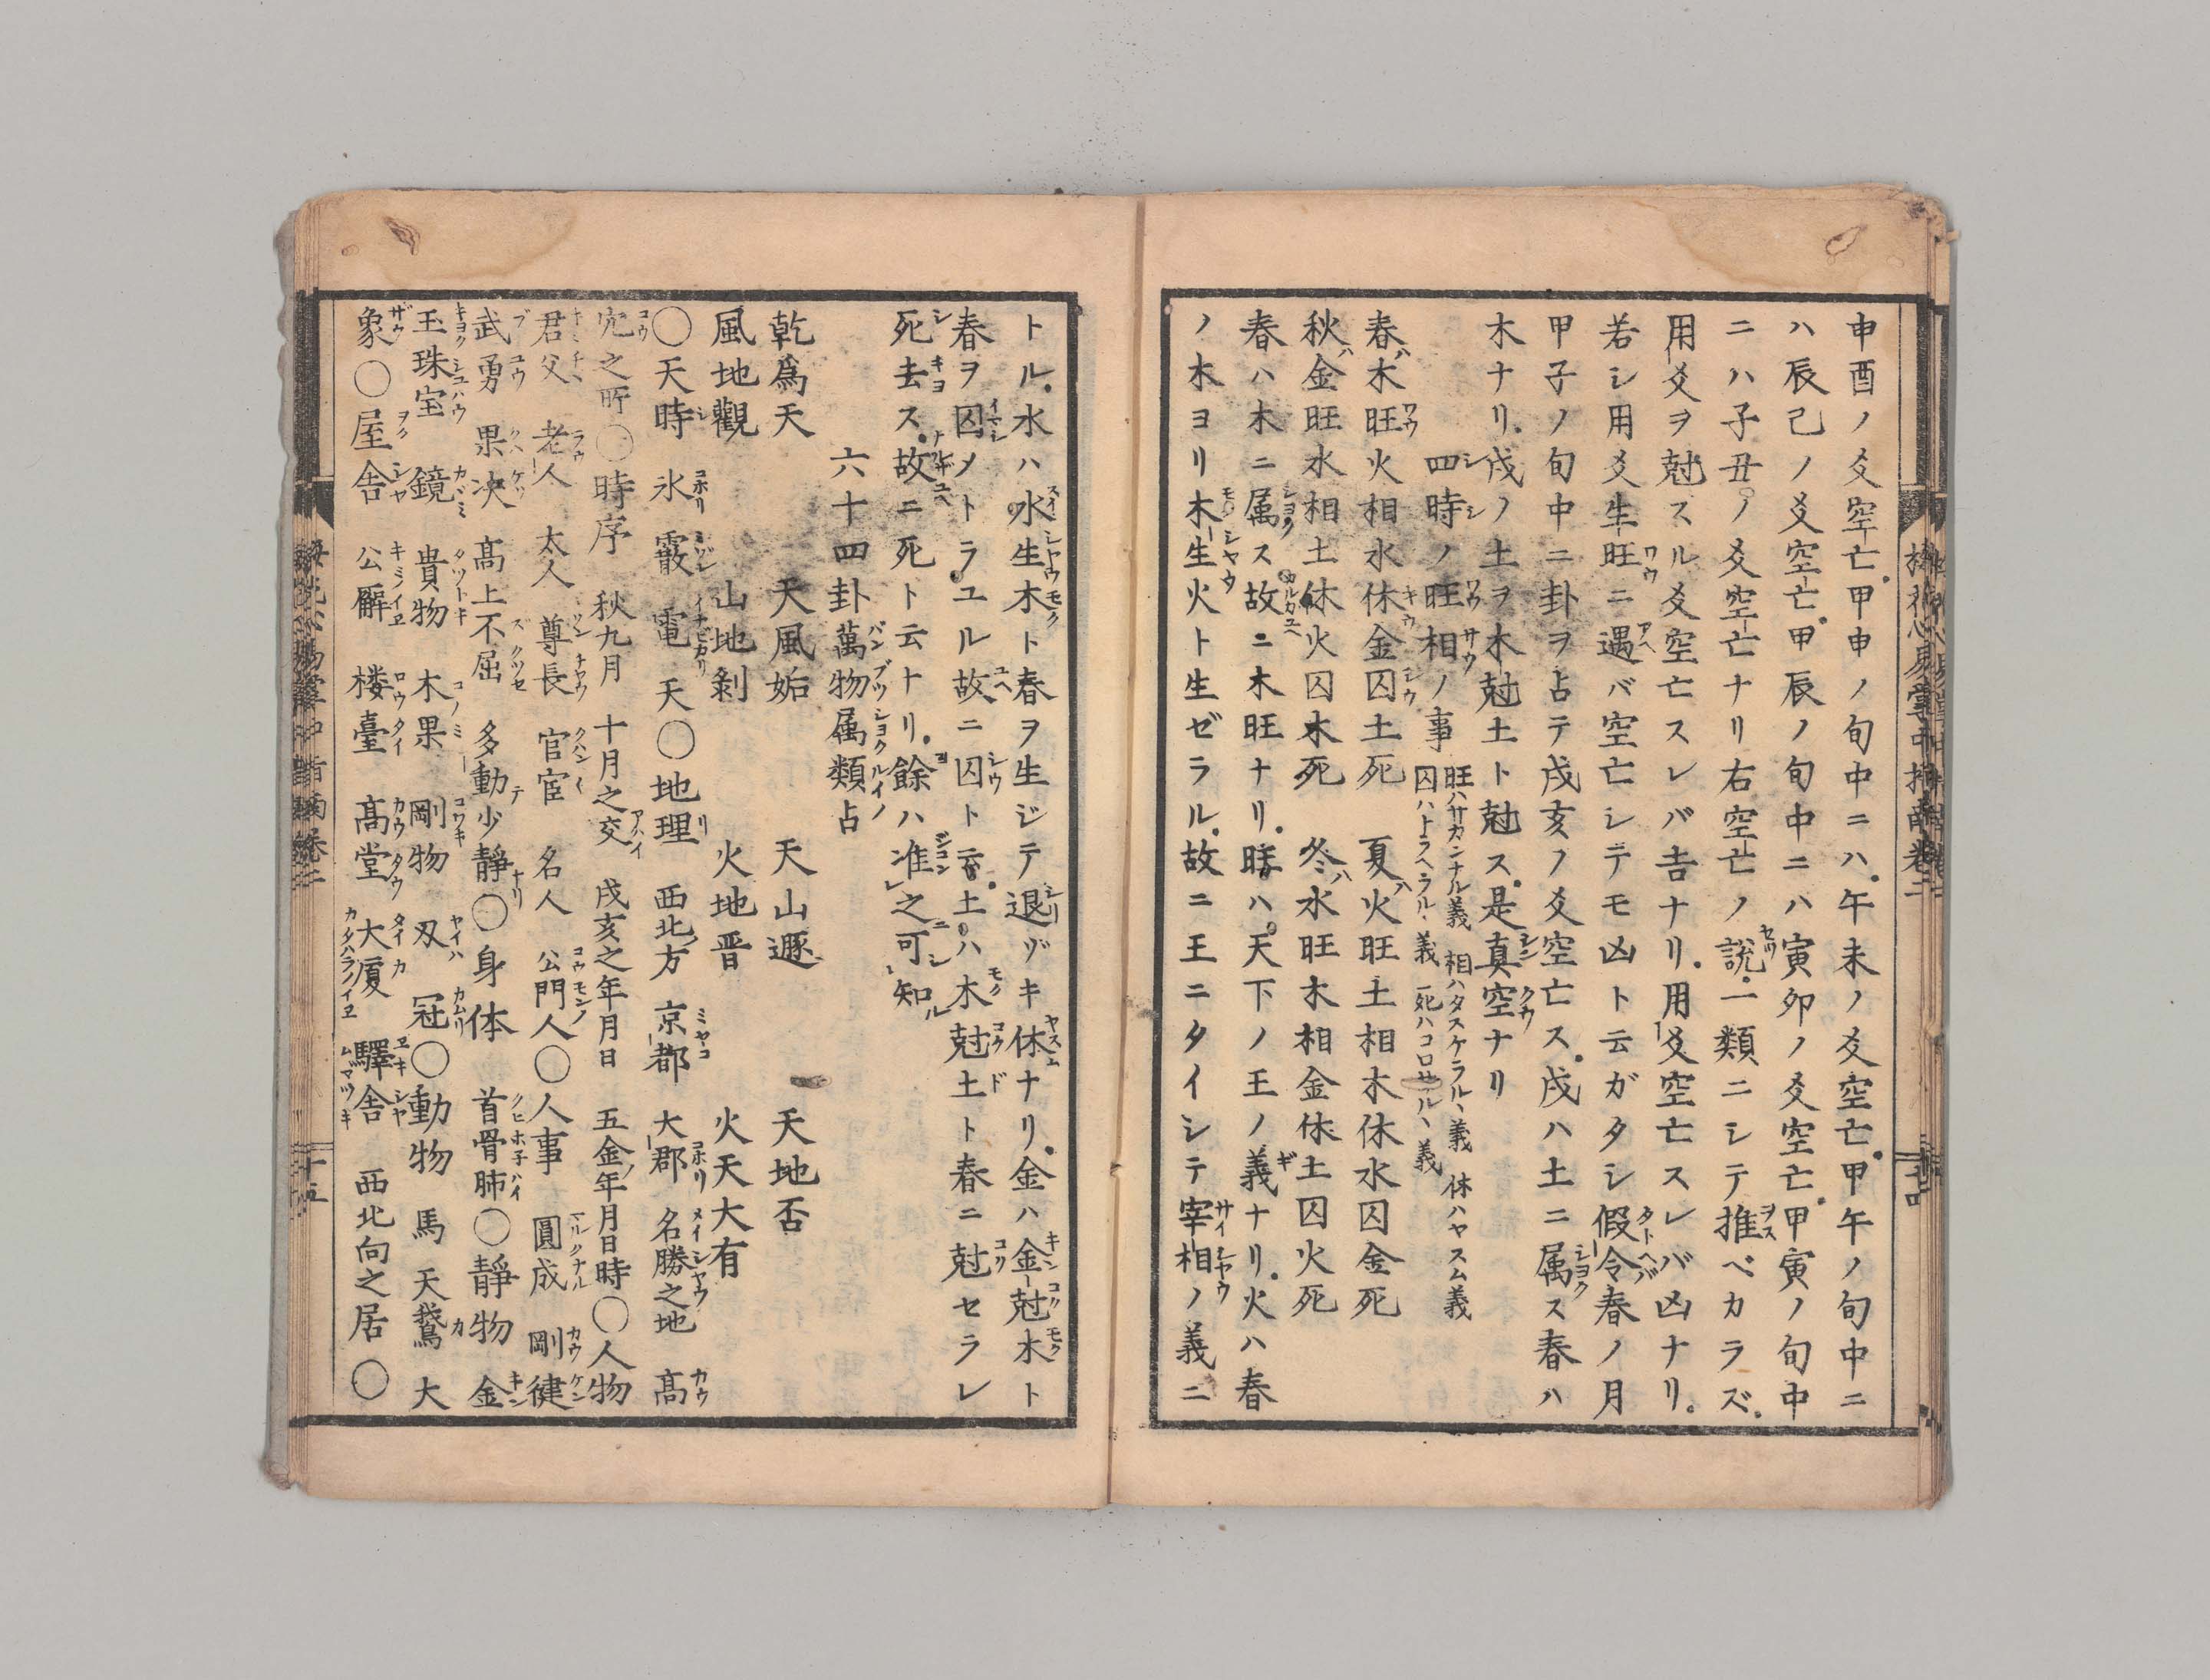 申酉ノ爻空亡。甲申ノ旬中ニハ。午未ノ爻空亡。甲午ノ旬中ニ
ハ辰巳ノ爻空亡。甲辰ノ旬中ニハ寅卯ノ爻空亡。甲寅ノ旬中
ニハ子丑ノ爻空亡ナリ右空亡ノ説。一類ニシテ推ベカラズ。
用爻ヲ尅スル爻空亡スレバ吉ナリ。用爻空亡スレバ凶ナリ。
若シ用爻生旺ニ遇バ空亡シテモ凶ト云ガタシ假令春ノ月
甲子ノ旬中ニ卦ヲ占テ戌亥ノ爻空亡ス。戌ハ土ニ属ス春ハ
木ナリ。戌ノ土ヲ木尅土ト尅ス。是真空ナリ
四時ノ旺相ノ事 旺ハサカンナル義 相ハタスケラルヽ義 休ハヤスム義
囚ハトラヘラルヽ義 死ハコロサルヽ義
春ハ木旺火相水休金囚土死 夏ハ火旺土相木休水囚金死
秋ハ金旺水相土休火囚木死 冬ハ水旺木相金休土囚火死
春ハ木ニ属ス故ニ木旺ナリ。旺ハ。天下ノ王ノ義ナリ。火ハ春
ノ木ヨリ木生火ト生ゼラル。故ニ王ニタイシテ宰相ノ義ニ
トル。水ハ水生木ト春ヲ生ジテ退ヅキ休ナリ。金ハ金尅木ト
春ヲ囚メトラユル故ニ囚ト云。土ハ木尅土ト春ニ尅セラレ
死去ス。故ニ死ト云ナリ。餘ハ准之可知
六十四卦萬物属類占
乾爲天 天風姤 天山遯 天地否
風地觀 山地剝 火地晋 火天大有
〇天時 氷 霰 電 天〇地理 西北方 京都 大郡 名勝之地 高
之所〇時序 秋九月 十月之交 戌亥之年月日 五金年月日時〇人物
君父 老人 太人 尊長 官宦 名人 公門人〇人事 圓成 剛健
武勇 果决 高上不屈 多動少静〇身体 首骨肺〇静物 金
玉珠宝 鏡 貴物 木果 剛物 刄 冠〇動物 馬 天鵞 大
象〇屋舎 公廨 楼臺 高堂 大厦 驛舎 西北向之居〇